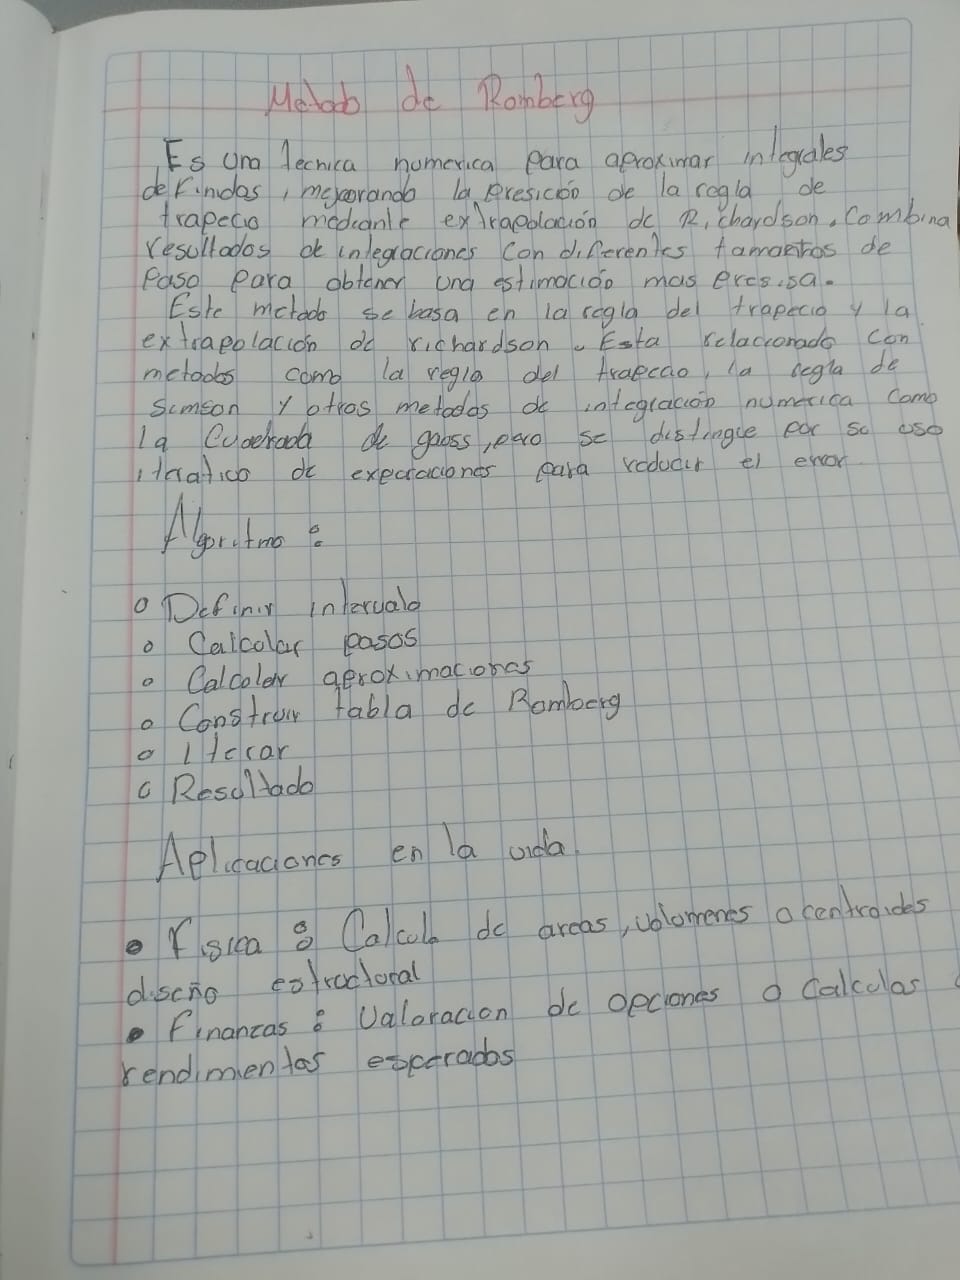 Metodo de Romberg
Es una Tecnica numerica para aproximar integrales
definidas, mejorando la presición de la regla de
trapecio mediante extrapolación de Richardson. Combina
resultados de integraciones con diferentes tamaños de
paso para obtener una estimación mas precisa.
Este metodo se basa en la regla del trapecio y la
extrapolación de richardson. Esta relacionado con
metodos como la regla del trapecio, la regla de
Simson y otros metodos de integración numerica como
la Cuadrada de gauss, pero se distingue por su uso
iterativo de para reducir el error
Algoritmo:
o Definir intervalo
o Calcolar pasos
o Calcoler aproximaciones
o Construir tabla de Romberg
o Iterar
o Resultado
Aplicaciones en la vida.
• Fisica: Calculo de areas, volumenes o centroides
diseño estructural
• Finanzas: Valoracion de opciones o Calculos
rendimientos esperados